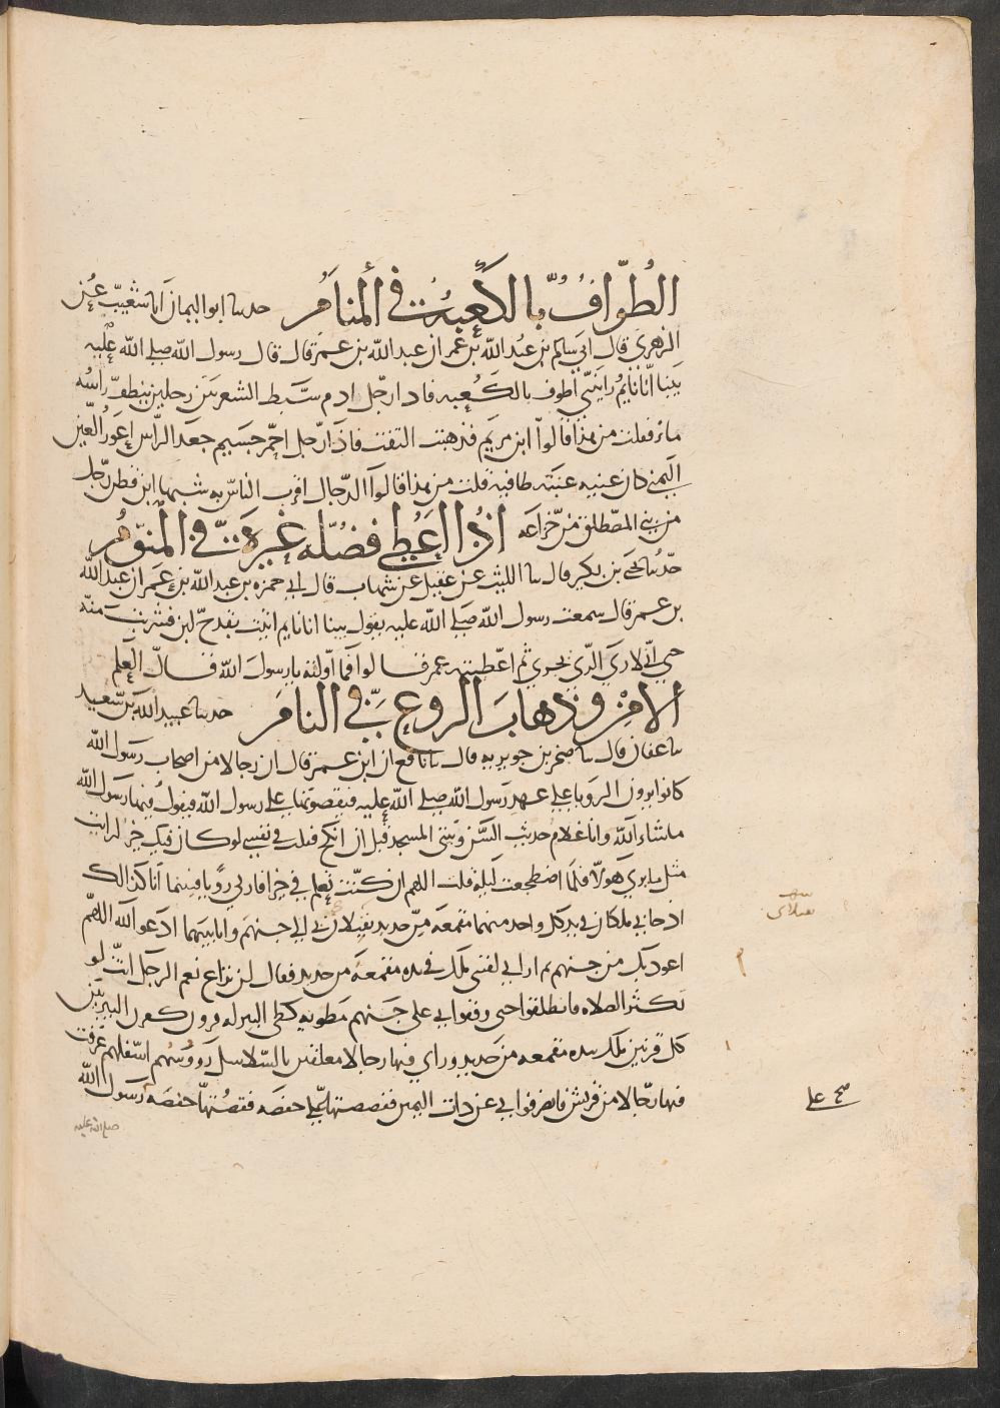 الطواف بالكعبة في المنام حدثنا ابو اليمان انا شعيب عن
الزهري قال اني سالم بن عبد الله بن عمر ان عبد الله بن عمر قال قال رسول الله صلى الله عليه
بينا انا نايم رايتني اطوف بالكعبه فاذا رجل ادم سبط الشعر بين رجلين ينطف راسه
ما فقلت من هذا قالوا ابن مريم فذهبت التفت فاذا رجل احمر جسيم جعد الراس اعور العين
اليمنى كان عينيه عنبة طافيه قلت من هذا قالوا الدجال اقرب الناس به شبها ابن قطن رجل
من بني المصطلق من خزاعه اذا اعطى فضله غيره في النوم
حدثنا يحيى بن بكير قال نا الليث عن عقيل عن شهاب قال اني حمزه بن عبد الله بن عمر ان عبد الله
بن عمر قال سمعت رسول الله صلى الله عليه يقول بينا انا نايم اتيت بقدح لبن فشربت منه
حتى اني لارى الري يجري ثم اعطيت عمر قالوا فما اولته يا رسول الله قال العلم
الامن وذهاب الروع في المنام حدثنا عبيد الله بن سعيد
نا عفان قال نا صخر بن جويريه قال نا نافع ان ابن عمر قال ان رجالا من اصحاب رسول الله
كانوا يرون الرويا على عهد رسول الله صلى الله عليه فيقصونها على رسول الله فيقول فيها رسول الله
ما شاء الله وانا غلام حديث السن وبيتي المسجد قبل ان انكح فقلت في نفسي لو كان فيك خير لرايت
مثل ما يرى هولا فلما اضطجعت ليلة قلت اللهم ان كنت تعلم في خيرا فارني رويا فبينما انا كذلك
اذ جاني ملكان في يد كل واحد منهما مقمعه من حديد يقبلان بي الى جهنم وانا بينهما ادعو الله اللهم
اعوذ بك من جهنم ثم اراني لقيني ملك في يده مقمعه من حديد فقال لن تراع نعم الرجل انت لو
تكثر الصلاه فانطلقوا حتى وقفوا بي على جهنم مطويه كطي البير له قرون كقرون البير بين
كل قرنين ملك بيده مقمعه من حديد وراى فيها رجالا معلقين بالسلاسل رووسهم اسفلهم عرفت
فيها رجالا من قريش فانصرفوا بي عن ذات اليمين فقصصتها على حفصه فقصتها حفصه رسول الله
صلى الله عليه
صح على